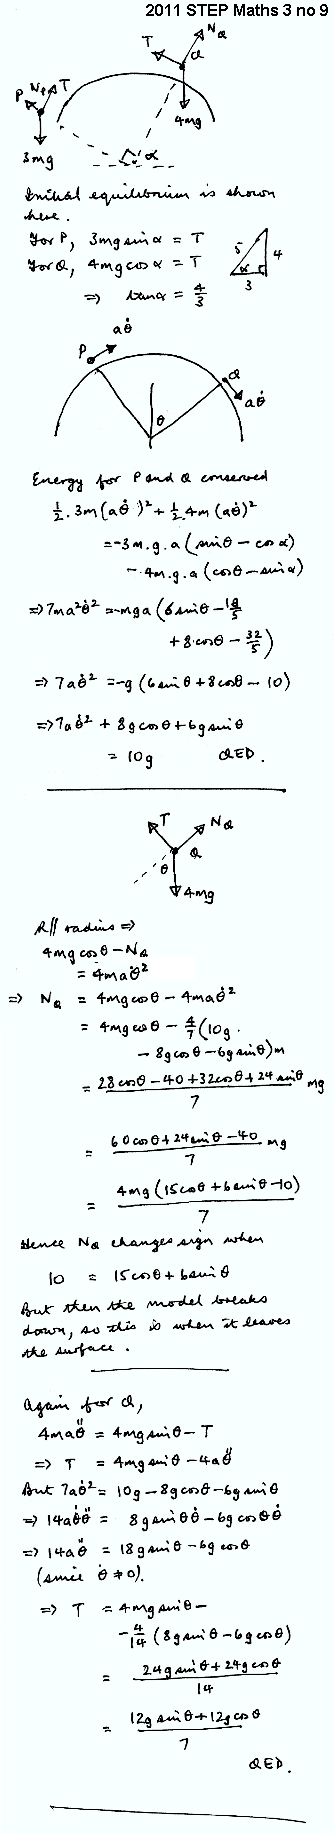 2011 STEP Maths 3 no 9
T N_Q
Q
P N_P T
4mg
3mg
α
Initial equilibrium is shown
here.
For P, 3mg sin α = T
For Q, 4mg cos α = T
⇒ tan α = 4/3
5 4
α
3
aθ̇
P
Q
aθ̇
θ
Energy for P and Q conserved
½.3m(aθ̇)² + ½.4m(aθ̇)²
= -3m.g.a(sin θ - cos α)
- 4m.g.a(cos θ - sin α)
⇒ 7ma²θ̇² = -mga(6 sin θ - 18/5
+ 8 cos θ - 32/5)
⇒ 7aθ̇² = -g(6 sin θ + 8 cos θ - 10)
⇒ 7aθ̇² + 8g cos θ + 6g sin θ
= 10g QED.
T N_Q
Q
θ
4mg
R// radius ⇒
4mg cos θ - N_Q
= 4maθ̇²
⇒ N_Q = 4mg cos θ - 4maθ̇²
= 4mg cos θ - 4/7(10g
- 8g cos θ - 6g sin θ)m
= (28 cos θ - 40 + 32 cos θ + 24 sin θ)/7 mg
= (60 cos θ + 24 sin θ - 40)/7 mg
= 4mg(15 cos θ + 6 sin θ - 10)/7
Hence N_Q changes sign when
10 = 15 cos θ + 6 sin θ
But then the model breaks
down, so this is when it leaves
the surface.
Again for Q,
4maθ̈ = 4mg sin θ - T
⇒ T = 4mg sin θ - 4aθ̈
But 7aθ̇² = 10g - 8g cos θ - 6g sin θ
⇒ 14aθ̇θ̈ = 8g sin θ θ̇ - 6g cos θ θ̇
⇒ 14aθ̈ = 18g sin θ - 6g cos θ
(since θ̇ ≠ 0).
⇒ T = 4mg sin θ -
- 4/14 (8g sin θ - 6g cos θ)
= (24g sin θ + 24g cos θ)/14
= (12g sin θ + 12g cos θ)/7
QED.